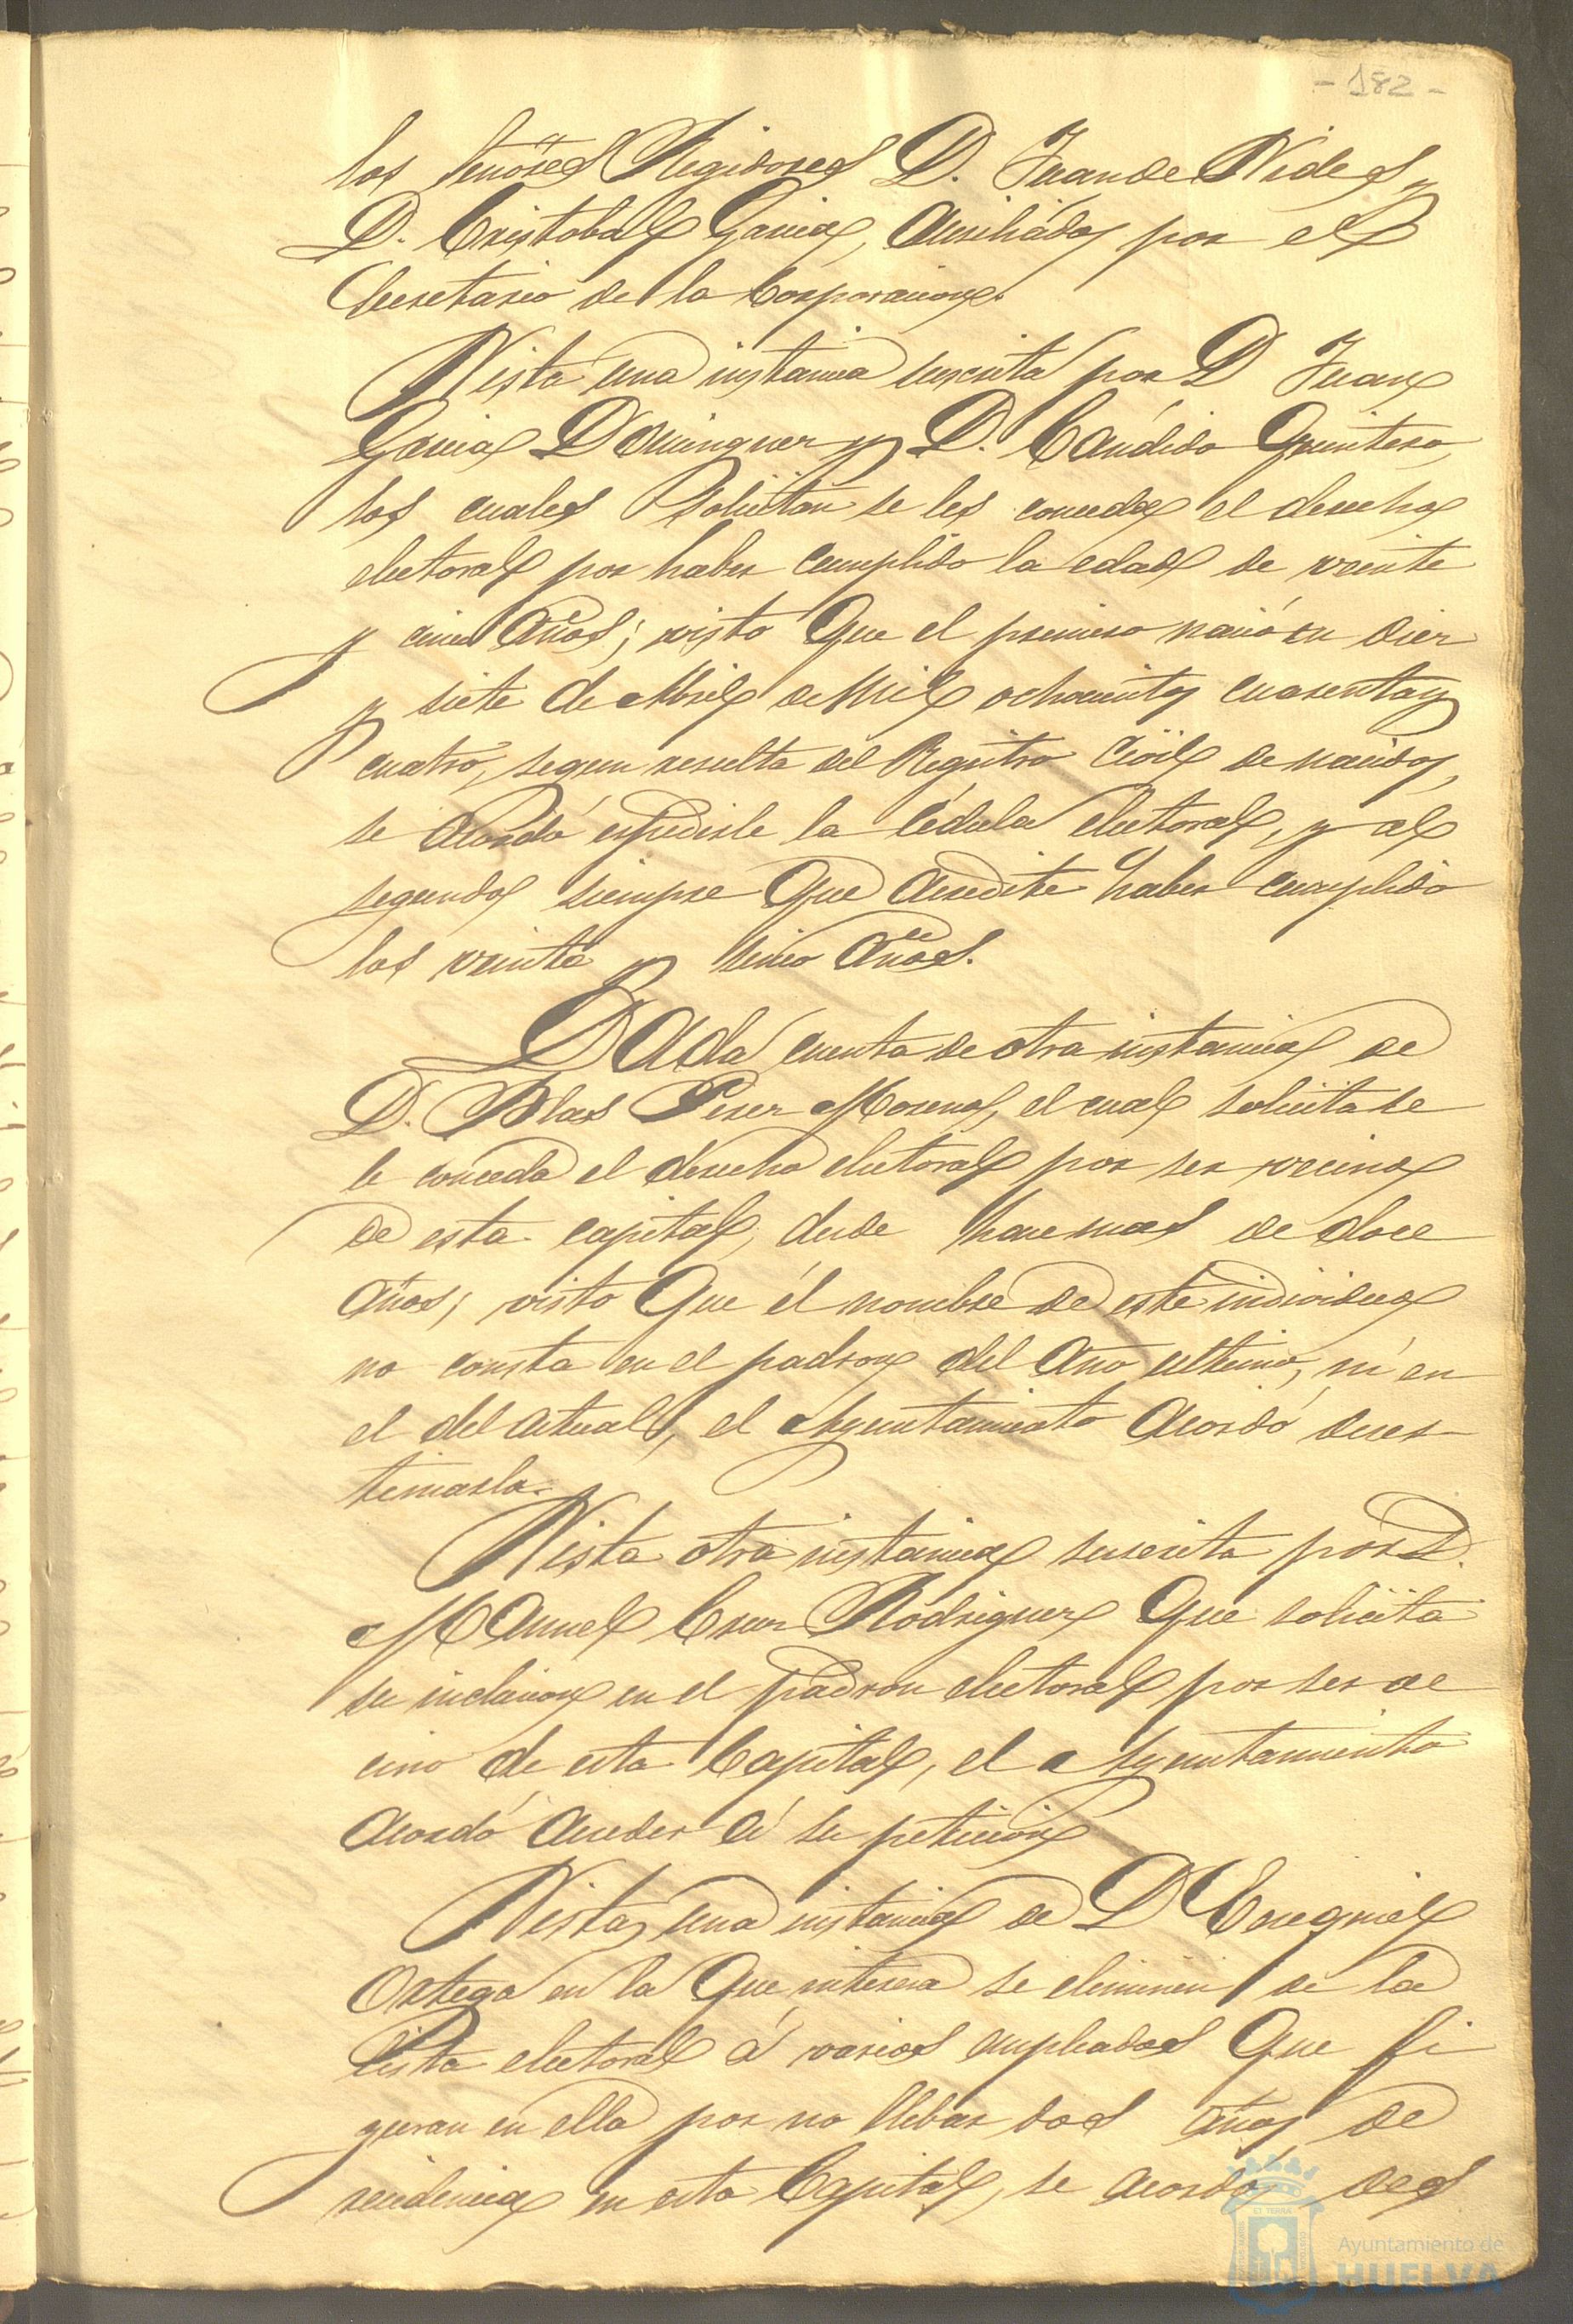 - 182 -
los Señores Regidores D. Juan de Vides y
D. Cristobal Garcia, auxiliados por el
Secretario de la Corporacion.
Vista una instancia suscrita por D Juan
Garcia Dominguez y D. Cándido Quintero,
los cuales solicitan se les conceda el derecho
electoral por haber cumplido la edad de veinte
y cinco años; visto que el primero nació en diez
y siete de Abril de mil ochocientos cuarenta y
cuatro, segun resulta del Registro Civil de nacidos,
se acordó espedirle la cédula electoral, y al
segundo siempre que acredite haber cumplido
los veinte y cinco años.
Dada cuenta de otra instancia de
D. Blas Perez Moreno, el cual solicita se
le conceda el derecho electoral por ser vecino
de esta capital, desde hace mas de doce
años; visto que el nombre de este individuo
no consta en el padron del año ultimo, ni en
el del actual, el Ayuntamiento acordó deses-
timarla.
Vista otra instancia suscrita por D.
Manuel Cruz Rodriguez que solicita
su inclusion en el padron electoral por ser ve
cino de esta Capital, el Ayuntamiento
acordó acceder á su peticion
Vista una instancia de D Ezequiel
Ortega en la que interesa se eliminen de la
lista electoral á varios empleados que fi
guran en ella por no llebar dos años de
residencia en esta Capital, se acordó des
Ayuntamiento de
HUELVA